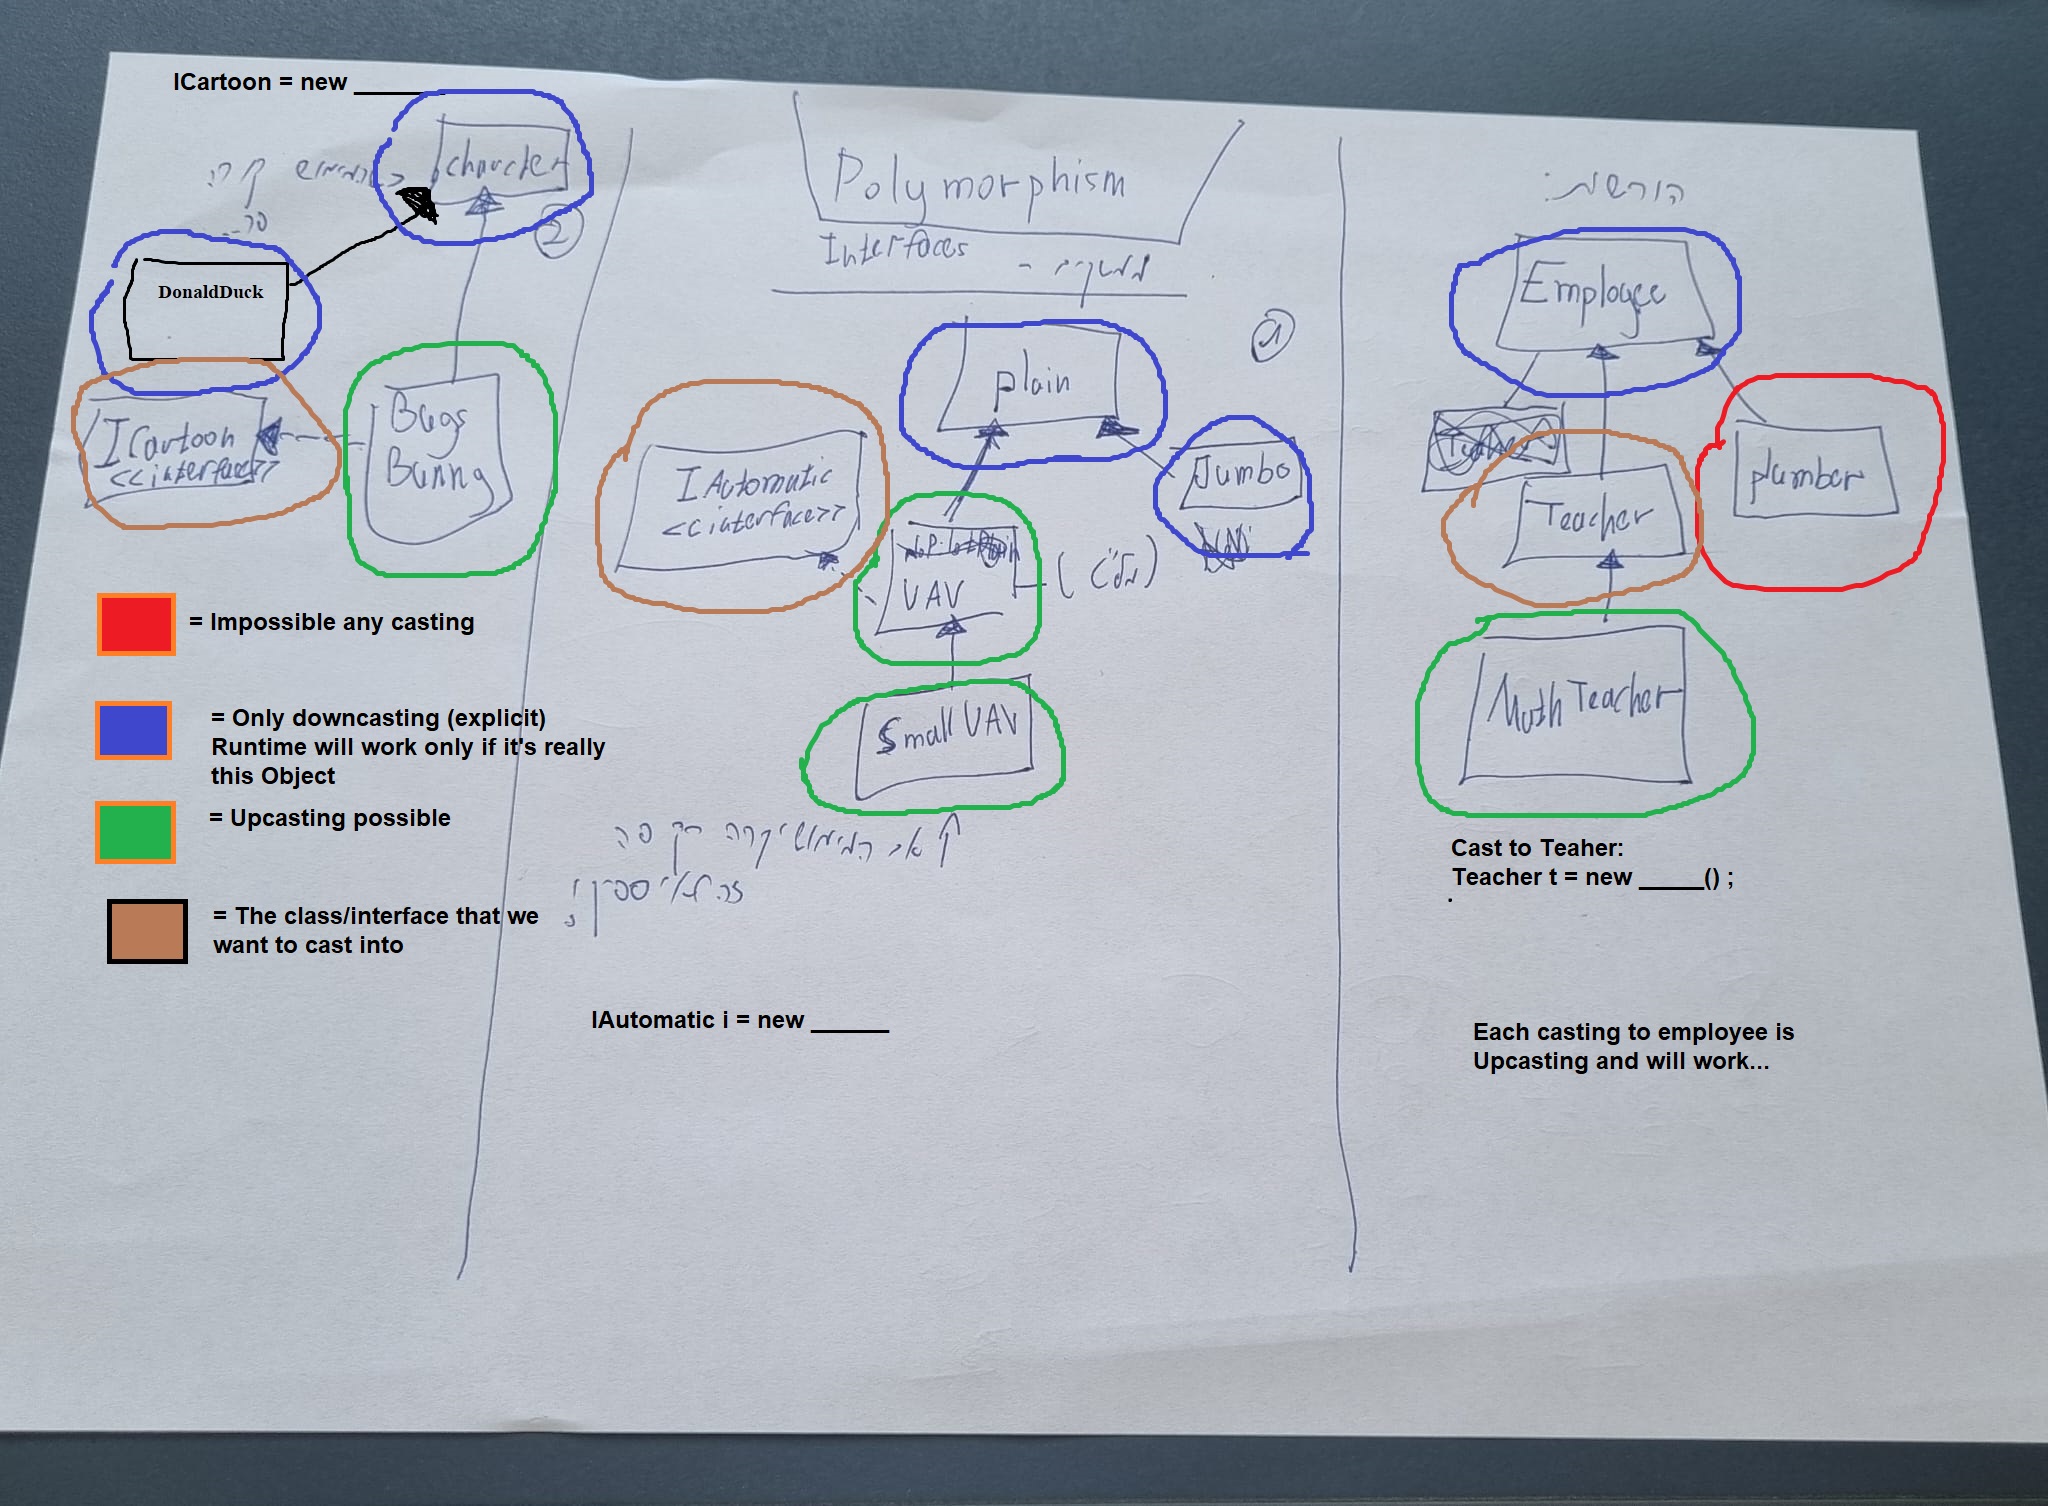 ICartoon = new ______
character
המימוש
רק פה
2
DonaldDuck
ICartoon
<<interface>>
Bugs
Bunny
= Impossible any casting
= Only downcasting (explicit)
Runtime will work only if it's really
this Object
= Upcasting possible
= The class/interface that we
want to cast into
Polymorphism
Interfaces - ממשקים
1
Plain
Jumbo
IAutomatic
<<interface>>
VAV
Small VAV
אם המימוש יקרה רק פה
IAutomatic i = new ______
הורשה:
Employee
Teacher
plumber
Math Teacher
Cast to Teaher:
Teacher t = new _____() ;
.
Each casting to employee is
Upcasting and will work...